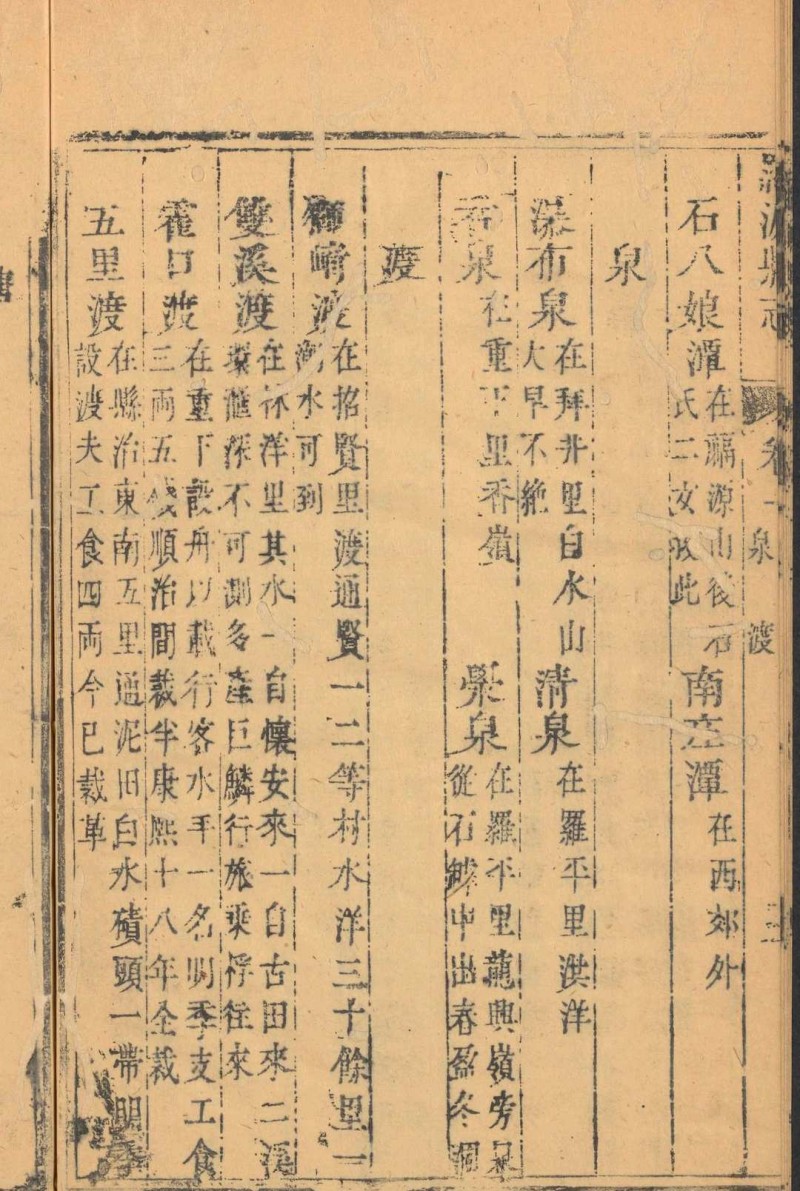 源縣志 卷一 泉 渡 三
石八娘潭 在福源山後石氏二女 此 南 潭 在西郊外
泉
瀑布泉 在拜井里白水山大旱不絶 清泉 在羅平里洪洋
香泉 在重下里香嶺 泉 在羅平里龍興嶺旁泉從石罅中出春盈冬涸
渡
渡 在招賢里渡通賢一二等村水洋三十餘里一 水可到
雙溪渡 在林洋里其水一自懷安來一自古田來二溪環匯深不可測多產巨鱗行旅乘桴往來
霍口渡 在重下設舟以載行客水手一名明季支工食三兩五錢順治間裁半康熙十八年全裁
五里渡 在縣治東南五里通泥田白水磧頭一帶明季設渡夫工食四兩今已裁革